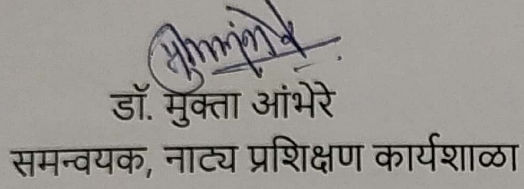 डॉ. मुक्ता आंभेरे
समन्वयक, नाट्य प्रशिक्षण कार्यशाळा